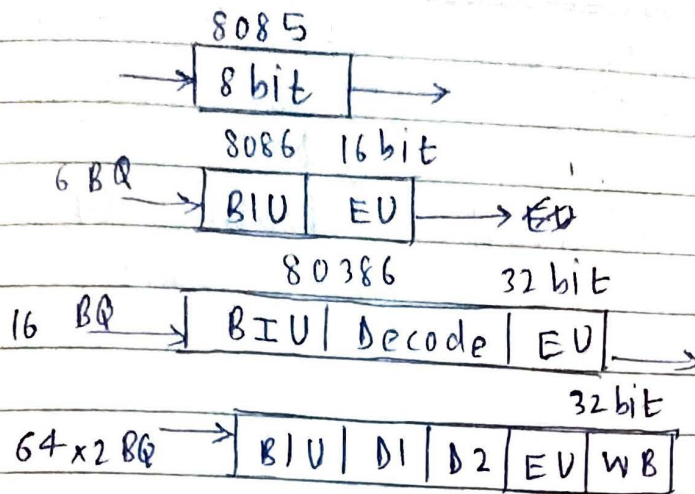 8085
8 bit
8086 16 bit
6 BQ BIU EU
80386 32 bit
16 BQ BIU Decode EU
32 bit
64 x 2 BQ BIU D1 D2 EU WB